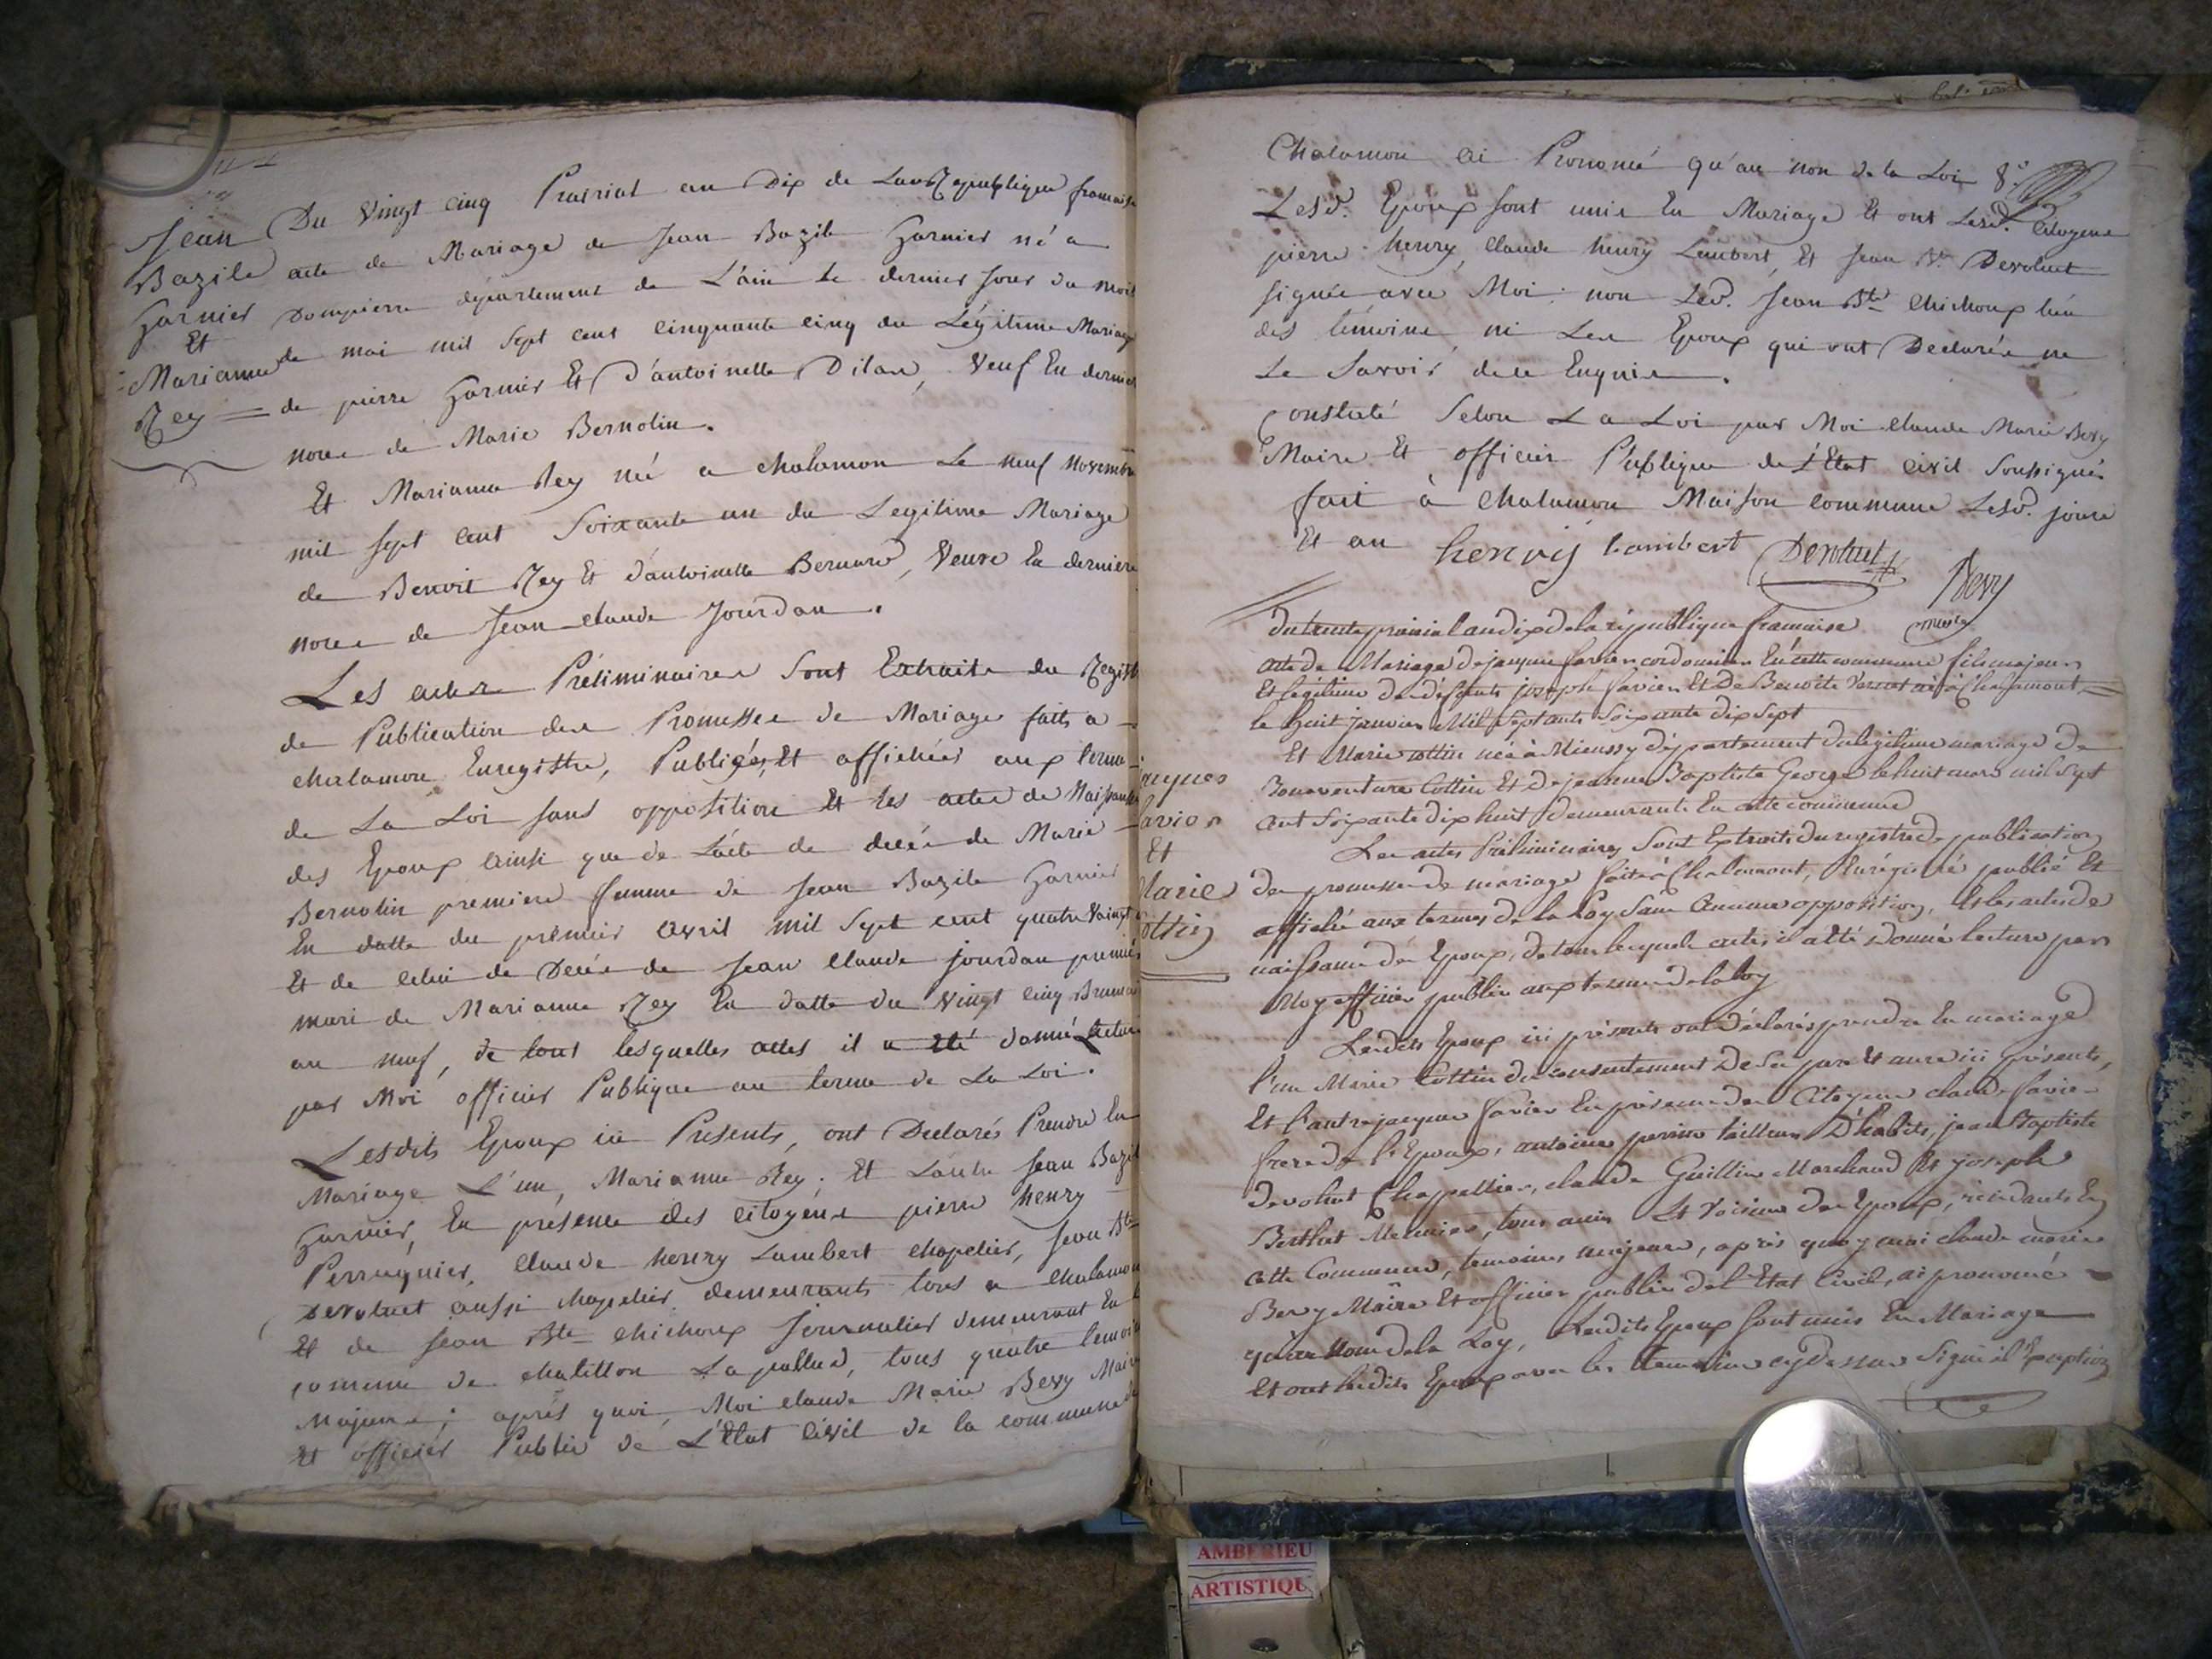 Jean
Bazile
Garnier
Et
Marianne
Rey
Du Vingt cinq Prairial an Dix de La République francaise
acte de Mariage de Jean Bazile Garnier né a
Dompierre département de L'ain le dernier Jour du mois
de mai mil Sept cent Cinquante cinq du Légitime Mariage
de pierre Garnier Et D'antoinette Dilas, Veuf En dernier
noce de Marie Bernolin.
Et Marianne Rey né a chalamon Le neuf Novembre
mil sept cent Soixante un du Legitime Mariage
de Benoit Rey Et d'antoinette Bernard, Veuve En derniere
noce de Jean claude Jourdan.
Les actes Préliminaires Sont Extraits du Registre
de Publication des Promesses de Mariage faits a
chalamon Enregistre, Publiées, Et affichées aux terme
de La Loi sans opposition Et les actes de Naissance
des Epoux ainsi que de L'acte de decés de Marie
Bernolin premiere femme de Jean Bazile Garnier
En datte du premier avril mil Sept cent quatre vaingt
Et de celui de Decés de Jean Claude jourdan premier
mari de Marianne Rey En datte du Vingt Cinq Brumaire
an neuf, de tout lesquelles actes il a été donné Lecture
par Moi officier Publique au terme de La Loi.
Lesdits Epoux ici Présents, ont Declarés Prendre En
Mariage L'une, Marianne Rey; Et L'autre Jean Bazile
Garnier, En présence des citoyens pierre henry
Perruquier, Claude henry Lambert chapelier, Jean Bte
Devoluet aussi chapelier demeurants tous a Chalamon
Et de Jean Bte chichoux Journalier demeurant En
comune de chatillon La pallud, tous quatre temoins
Majeurs; après quoi, Moi claude Marie Bevy Maire
Et officier Public de L'Etat Civil de la commune de
Chalamon ai Prononcé qu'au non de la Loi
Lesd. Epoux sont unis En Mariage Et ont Lesd. Citoyens
pierre henry, claude henry Lambert, Et Jean Bte Devoluet
signés avec Moi; non Led. Jean Bte Chichoux L'un
des témoins, ni Les Epoux qui ont Declarés ne
Le Savoir de ce Enquis.
Constaté Selon La Loi par Moi Claude Marie Bevy
Maire Et officier Publique de L'Etat civil Soussigné
fait à Chalamon Maison commune Lesd. jours
Et an henry Lambert Devoluet Bevy
maire
jaques
favier
Et
Marie
Cottin
du trente prairial an dix de la république francaise
acte de Mariage de jacques favier cordonnier En cette commune fils majeur
Et légitime de défunts joseph favier Et De Benoite né à Chalamont
le huit janvier Mil Sept cents Soixante dix Sept
Et Marie cottin née à département du légitime mariage de
Bonaventure Cottin Et de jeanne Baptiste George le huit mars mil Sept
cent Soixante dix huit Demeurante En cette commune
Les actes Préliminaires Sont Extraits du registre de publication
de promesse de mariage faite à Chalamont, Enrégistré publié Et
affiché aux termes de la Loy Sans Aucune opposition, Et les actes de
naissance des Epoux, de tous lesquels actes il a été Donné lecture par
Moy officier public aux termes de la loy
Lesdits Epoux ici présents ont déclarés prendre En mariage
l'une Marie Cottin du consentement De Ses pere Et mere ici présents,
Et l'autre jacques favier En présence des Citoyens claude favier
frere de l'Epoux, antoine perrin tailleur D'habits, jean Baptiste
Devoluet Chapellier, claude Guillin Marchand Et joseph
Berthet Menuier, tous amis Et Voisins des Epoux, résidants En
cette Commune, temoins majeurs, après quoy moi claude marie
Bevy Maire Et officier public de l'Etat Civil, ai prononcé
qu'au Nom de la Loy, Lesdits Epoux sont unis En Mariage
Et ont lesdits Epoux avec les temoins cy dessus Signé à l'Exception
AMBERIEU
ARTISTIQU